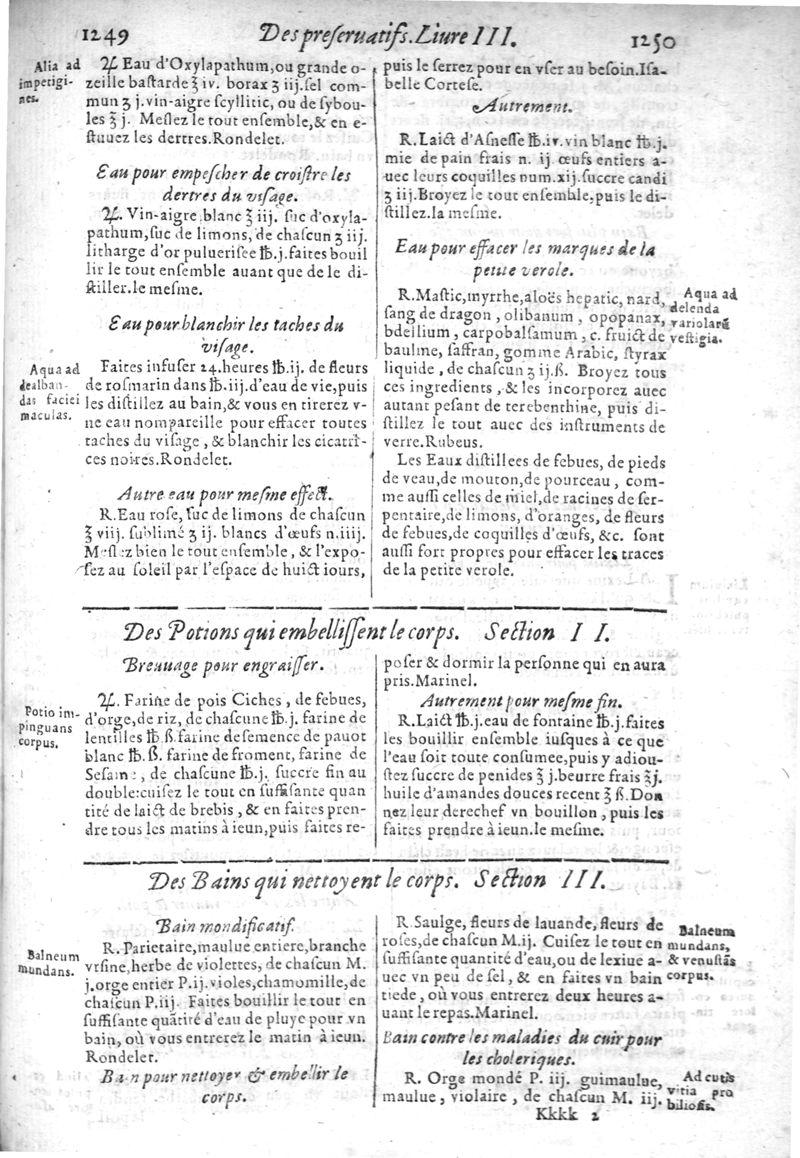 1249
Des preſeruatifs. Liure III.
1250
Alia ad
impetigi-
nes.
♃. Eau d'Oxylapathum, ou grande o-
zeille baſtarde ℥ iv. borax ʒ iij. ſel com-
mun ʒ j. vin-aigre ſcyllitic, ou de ſybou-
les ℥ j. Meſlez le tout enſemble, & en e-
ſtuuez les dertres. Rondelet.
Eau pour empeſcher de croiſtre les
dertres du viſage.
♃. Vin-aigre blanc ℥ iij. ſuc d'oxyla-
pathum, ſuc de limons, de chaſcun ʒ iij.
litharge d'or pulueriſee ℔. j. faites bouil
lir le tout enſemble auant que de le di-
ſtiller. le meſme.
Eau pour blanchir les taches du
viſage.
Aqua ad
dealban-
das faciei
maculas.
Faites infuſer 24. heures ℔. ij. de fleurs
de roſmarin dans ℔. iij. d'eau de vie, puis
les diſtillez au bain, & vous en tirerez v-
ne eau nompareille pour effacer toutes
taches du viſage, & blanchir les cicatri-
ces noires. Rondelet.
Autre eau pour meſme effect.
R. Eau roſe, ſuc de limons de chaſcun
℥ viij. ſublimé ʒ ij. blancs d'œufs n. iij.
Meſlez bien le tout enſemble, & l'expo-
ſez au ſoleil par l'eſpace de huict iours,
puis le ſerrez pour en vſer au beſoin. Iſa-
belle Corteſe.
Autrement.
R. Laict d'Aſneſſe ℔. iv. vin blanc ℔. j.
mie de pain frais n. ij œufs entiers a-
uec leurs coquilles num. xij. ſuccre candi
ʒ iij. Broyez le tout enſemble, puis le di-
ſtillez. la meſme.
Eau pour effacer les marques de la
petite verole.
R. Maſtic, myrrhe, aloës hepatic, nard,
ſang de dragon, olibanum, opopanax,
bdellium, carpobalſamum, c. fruict de
baulme, ſaffran, gomme Arabic, ſtyrax
liquide, de chaſcun ʒ ij. ß. Broyez tous
ces ingredients, & les incorporez auec
autant peſant de terebenthine, puis di-
ſtillez le tout auec des inſtruments de
verre. Rubeus.
Aqua ad
delenda
variolarũ
veſtigia.
Les Eaux diſtillees de febues, de pieds
de veau, de mouton, de pourceau, com-
me auſſi celles de miel, de racines de ſer-
pentaire, de limons, d'oranges, de fleurs
de febues, de coquilles d'œufs, &c. ſont
auſſi fort propres pour effacer les traces
de la petite verole.
Des Potions qui embelliſſent le corps. Section II.
Breuuage pour engraiſſer.
Potio im-
pinguans
corpus.
♃. Farine de pois Ciches, de febues,
d'orge, de riz, de chaſcune ℔. j. farine de
lentilles ℔. ß. farine de ſemence de pauot
blanc ℔. ß. farine de froment, farine de
Seſame, de chaſcune ℔. j. ſuccre fin au
double: cuiſez le tout en ſuffiſante quan
tité de laict de brebis, & en faites pren-
dre tous les matins à ieun, puis faites re-
poſer & dormir la perſonne qui en aura
pris. Marinel.
Autrement pour meſme fin.
R. Laict ℔. j. eau de fontaine ℔. j. faites
les bouillir enſemble iuſques à ce que
l'eau ſoit toute conſumee, puis y adiou-
ſtez ſuccre de penides ʒ j. beurre frais ℥ j.
huile d'amandes douces recent ℥ ß. Don
nez leur derechef vn bouillon, puis les
faites prendre à ieun. le meſme.
Des Bains qui nettoyent le corps. Section III.
Bain mondificatif.
Balneum
mundans.
R. Parietaire, maulue entiere, branche
vrſine, herbe de violettes, de chaſcun M.
j. orge entier P. ij. violes, chamomille, de
chaſcun P. iij. Faites bouillir le tout en
ſuffiſante quãtité d'eau de pluye pour vn
bain, où vous entrerez le matin à ieun.
Rondelet.
Bain pour nettoyer & embellir le
corps.
R. Saulge, fleurs de lauande, fleurs de
roſes, de chaſcun M. ij. Cuiſez le tout en
ſuffiſante quantité d'eau, ou de lexiue a-
uec vn peu de ſel, & en faites vn bain
tiede, où vous entrerez deux heures a-
uant le repas. Marinel.
Balneum
mundans,
& venuſtãs
corpus.
Bain contre les maladies du cuir pour
les choleriques.
R. Orge mondé P. iij. guimaulue,
maulue, violaire, de chaſcun M. iij.
Ad cutis
vitia pro
bilioſis.
Kkkk 2